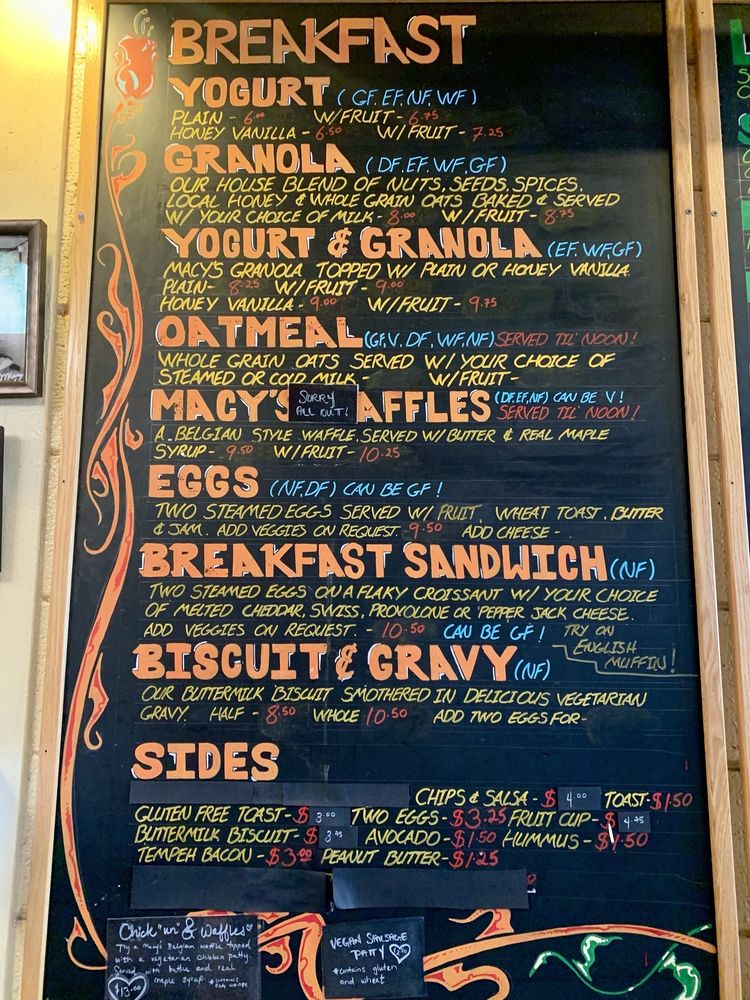 BREAKFAST
YOGURT (GF, EF, NF, WF)
PLAIN - 6.00 W/FRUIT - 6.75
HONEY VANILLA - 6.50 W/FRUIT - 7.25
GRANOLA (DF, EF, WF, GF)
OUR HOUSE BLEND OF NUTS, SEEDS, SPICES,
LOCAL HONEY & WHOLE GRAIN OATS BAKED & SERVED
W/ YOUR CHOICE OF MILK - 8.00 W/FRUIT - 8.75
YOGURT & GRANOLA (EF, WF, GF)
MACY'S GRANOLA TOPPED W/ PLAIN OR HONEY VANILLA
PLAIN - 8.25 W/FRUIT - 9.00
HONEY VANILLA - 9.00 W/FRUIT - 9.75
OATMEAL (GF, V, DF, WF, NF) SERVED TIL' NOON!
WHOLE GRAIN OATS SERVED W/ YOUR CHOICE OF
STEAMED OR COLD MILK - W/FRUIT -
MACY'S AFFLES (DF, EF, NF) CAN BE V!
SORRY ALL OUT! SERVED TIL' NOON!
A BELGIAN STYLE WAFFLE SERVED W/ BUTTER & REAL MAPLE
SYRUP - 9.50 W/FRUIT - 10.25
EGGS (NF, DF) CAN BE GF!
TWO STEAMED EGGS SERVED W/ FRUIT, WHEAT TOAST, BUTTER
& JAM. ADD VEGGIES ON REQUEST 9.50 ADD CHEESE -
BREAKFAST SANDWICH (NF)
TWO STEAMED EGGS ON A FLAKY CROISSANT W/ YOUR CHOICE
OF MELTED CHEDDAR, SWISS, PROVOLONE OR PEPPER JACK CHEESE.
ADD VEGGIES ON REQUEST. - 10.50 CAN BE GF! TRY ON
ENGLISH
MUFFIN!
BISCUIT & GRAVY (NF)
OUR BUTTERMILK BISCUIT SMOTHERED IN DELICIOUS VEGETARIAN
GRAVY. HALF - 8.50 WHOLE 10.50 ADD TWO EGGS FOR -
SIDES
CHIPS & SALSA - $ 4.00 TOAST - $1.50
GLUTEN FREE TOAST - $ 3.00 TWO EGGS - $3.25 FRUIT CUP - $ 4.25
BUTTERMILK BISCUIT - $ AVOCADO - $1.50 HUMMUS - $1.50
TEMPEH BACON - $3.00 PEANUT BUTTER - $1.25
Chick "un" & Waffles
Try a Macy's Belgian waffle topped
with a vegetarian chicken patty.
Served with butter and real
maple syrup. *contains
$13.00
VEGAN SAUSAGE
PATTY
*contains gluten
and wheat